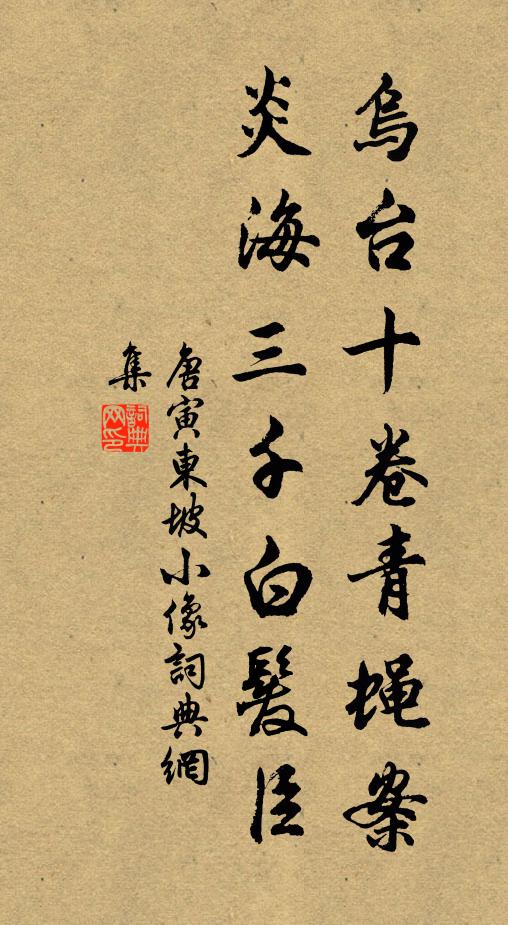 烏台十卷青蝇案
炎海三千白髮臣
唐寅東坡小像詞典網
集
詞典網印